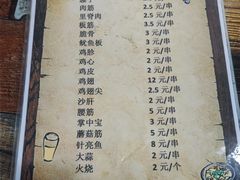 肉筋 2.5 元/串
里脊肉 2.5 元/串
板筋 3.5 元/串
脆骨 3 元/串
鱿鱼板 3 元/串
鸡胗 2 元/串
鸡心 2 元/串
鸡皮 2 元/串
鸡翅 12 元/串
鸡翅尖 2.5 元/串
沙肝 2 元/串
腰筋 5 元/串
掌中宝 3 元/串
蘑菇筋 5 元/串
针亮鱼 8 元/串
大蒜 2 元/串
火烧 2 元/个